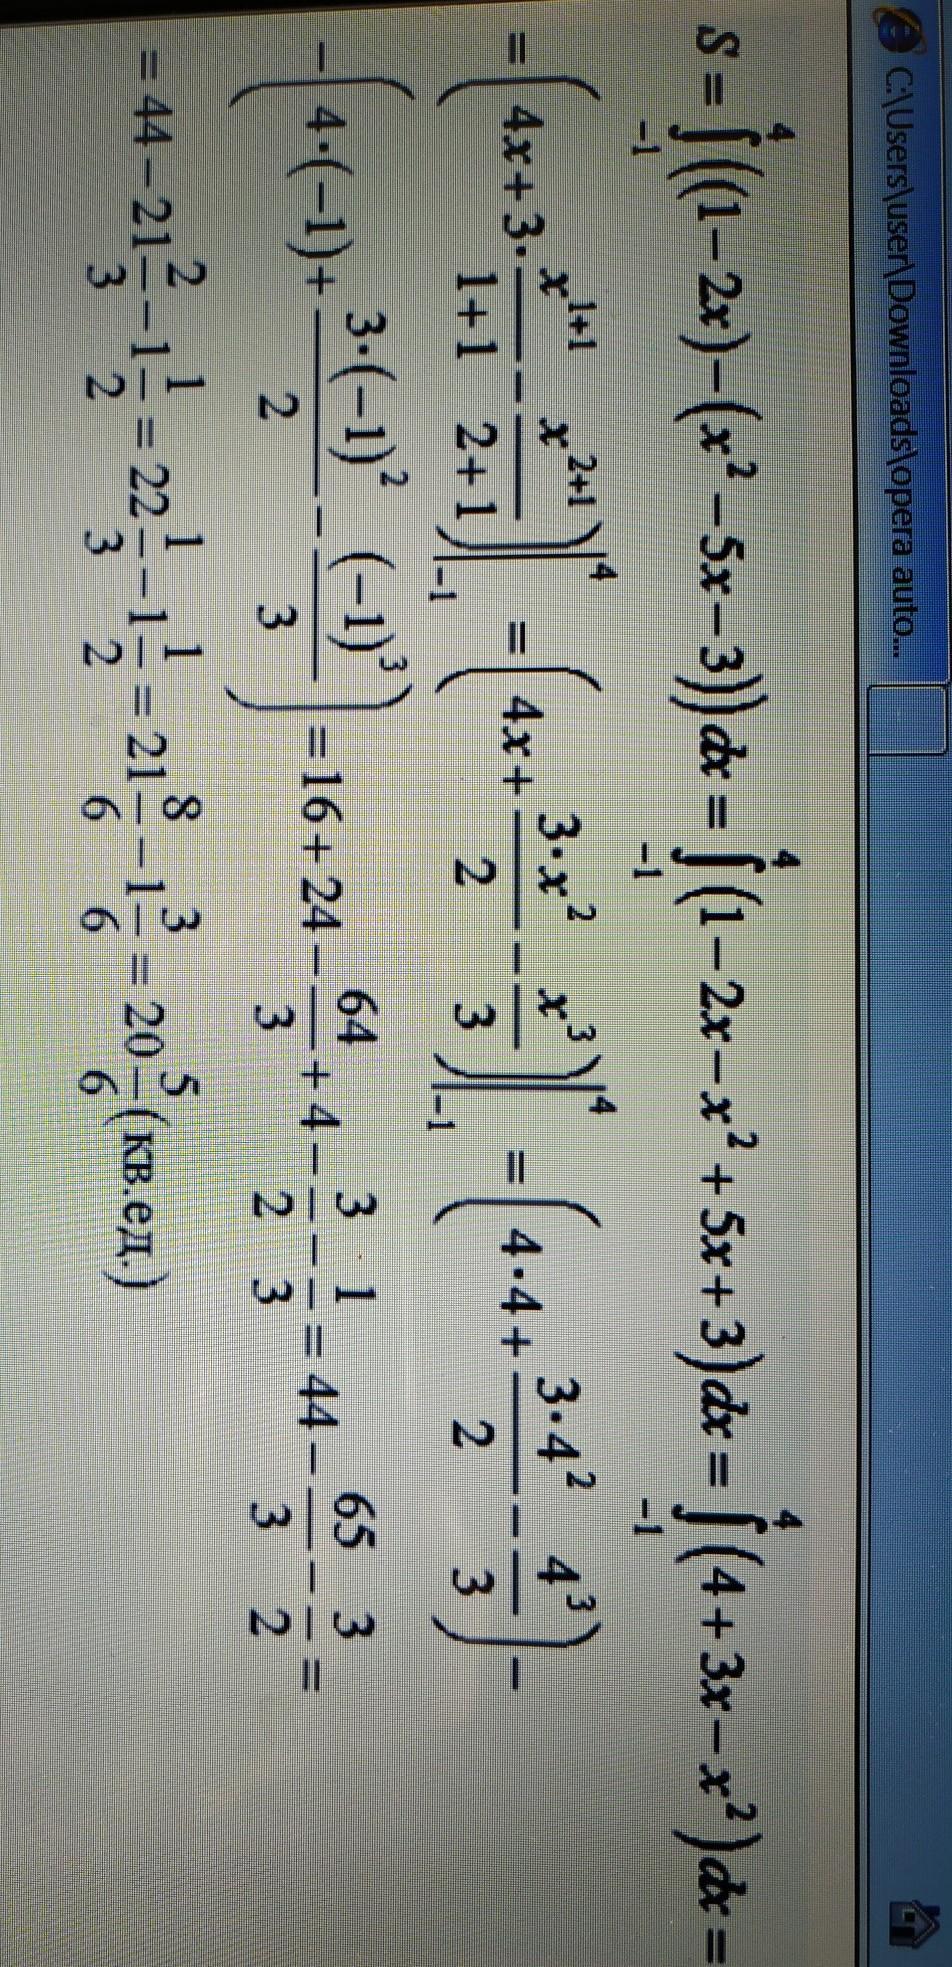 C:\Users\user\Downloads\opera auto...
S = ∫₋₁⁴((1−2x)−(x²−5x−3))dx = ∫₋₁⁴(1−2x−x²+5x+3)dx = ∫₋₁⁴(4+3x−x²)dx =
= (4x+3·x¹⁺¹/(1+1) − x²⁺¹/(2+1))|₋₁⁴ = (4x+(3·x²)/2 − x³/3)|₋₁⁴ = (4·4+(3·4²)/2 − 4³/3) −
− (4·(−1)+(3·(−1)²)/2 − (−1)³/3) = 16+24−64/3+4−3/2−1/3 = 44−65/3−3/2 =
= 44−21 2/3−1 1/2 = 22 1/3−1 1/2 = 21 8/6−1 3/6 = 20 5/6 (кв.ед.)